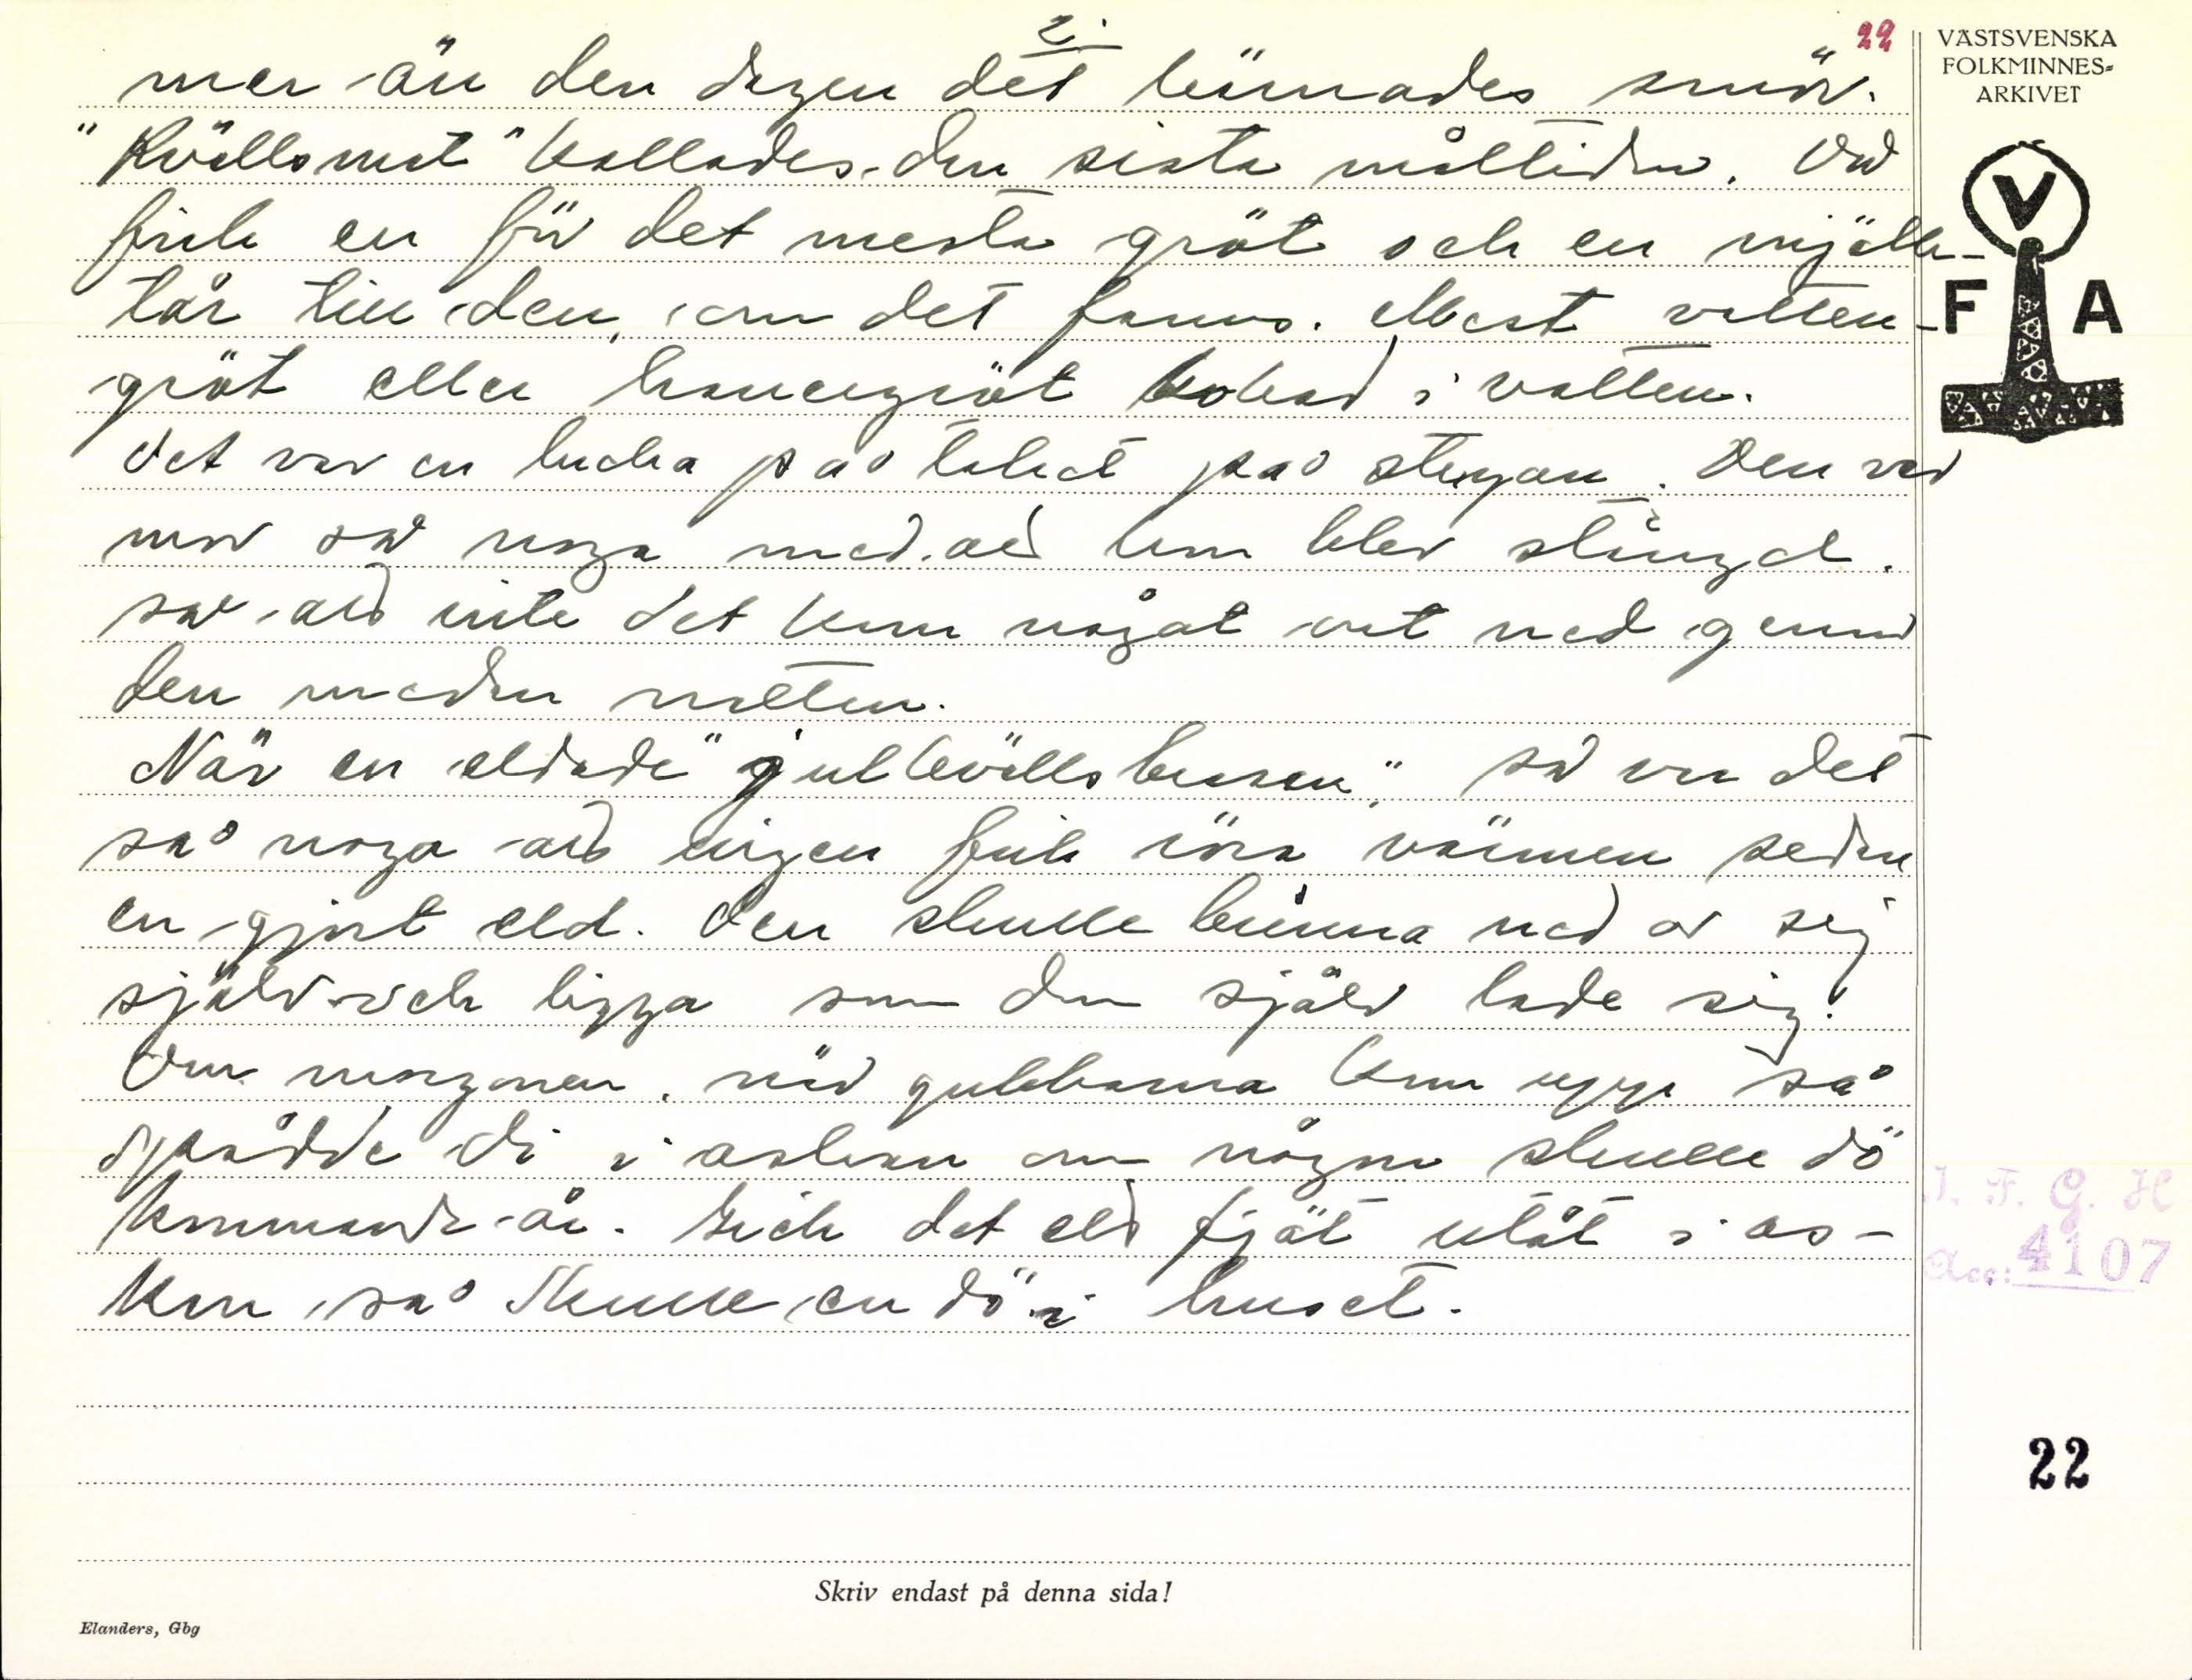 2.
22
mer än den dagen det kärnades smör.
"Kvällsmat" kallades den sista måltiden. Då
fick en för det mesta gröt och en mjölk-
tår till den, om det fanns. Mest vatten-
gröt eller havregröt kokad i vatten.
Det var en lucka på taket på stugan. Den var
mor så noga med att kom blev stängd.
så att inte det kom något ont ned genom
den under natten.
När en eldade "julkvällsbrasan", så var det
så noga att ingen fick röra värmen sedan
en gjort eld. Den skulle brinna ned av sig
själv och ligga som den själv lade sig!
Om morgonen, när gubbarna kom upp så
spådde di i askan om någon skulle dö
kommande år. Gick det ett fjät utåt i as-
kan så skulle en dö i huset.
VÄSTSVENSKA
FOLKMINNES-
ARKIVET
V
F A
I. F. G. H
Acc: 4107
22
Skriv endast på denna sida!
Elanders, Gbg